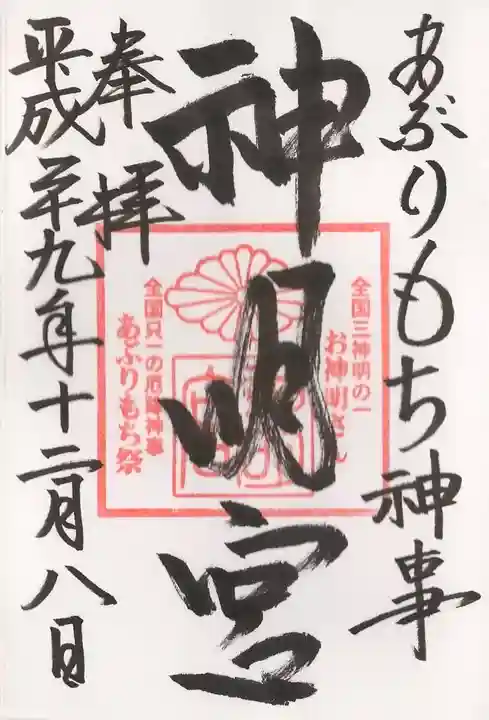 あぶりもち神事
神明宮
奉拝
平成廿九年十二月八日
全国三神明の一
お神明さん
全国只一の厄除神事
あぶりもち祭